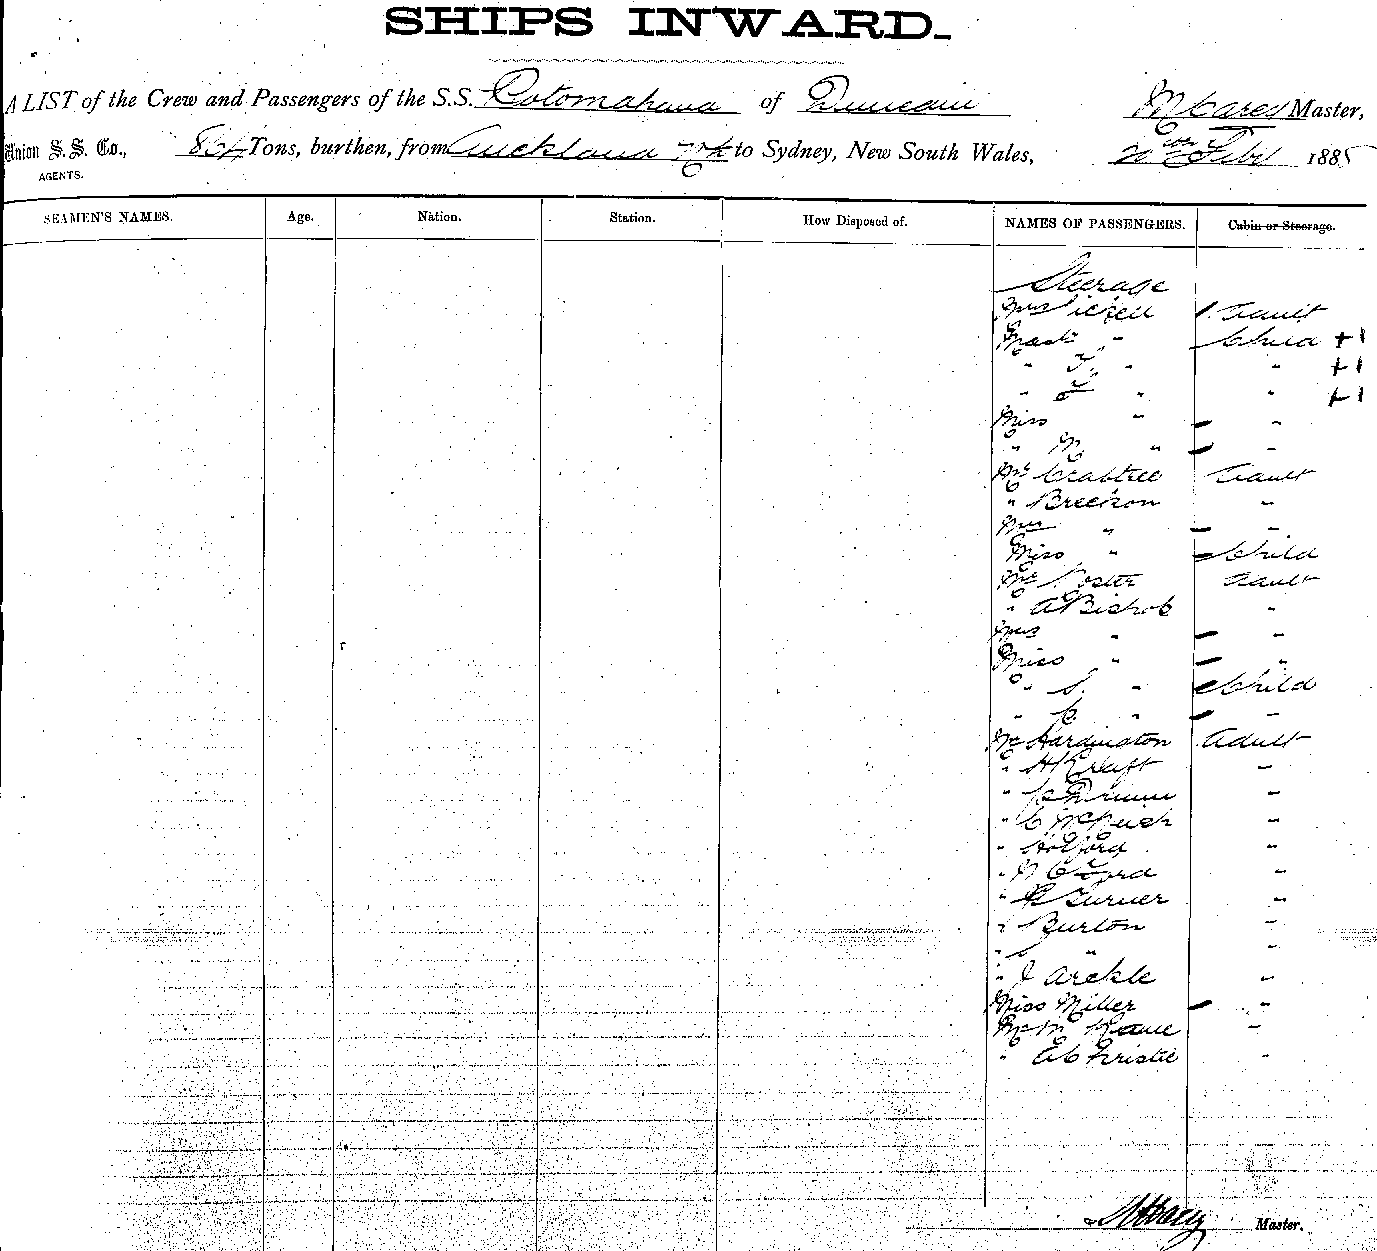 SHIPS INWARD.
A LIST of the Crew and Passengers of the S.S. Rotomahana of Dunedin M Carey Master,
Union S. S. Co., 864 Tons, burthen, from Auckland to Sydney, New South Wales, Feby 1885
AGENTS.
SEAMEN'S NAMES. Age. Nation. Station. How Disposed of. NAMES OF PASSENGERS. Cabin or Steerage.
Steerage
Mrs Adult
Mast " Child +1
" F. " " +1
" " " +1
Miss " "
" M " "
Mr Crabtree Adult
" Breckon "
Mrs " "
Miss " Child
Mr Foster Adult
" A Bishop "
Mrs " "
Miss " "
" S. " Child
" C. " "
Mr Hardington Adult
" H Kraft "
" "
" C "
" Holford "
" Ford "
" Turner "
" Burton "
" " "
" J Arckle "
Miss Miller "
Mr M Kane "
" E Christie "
Master.